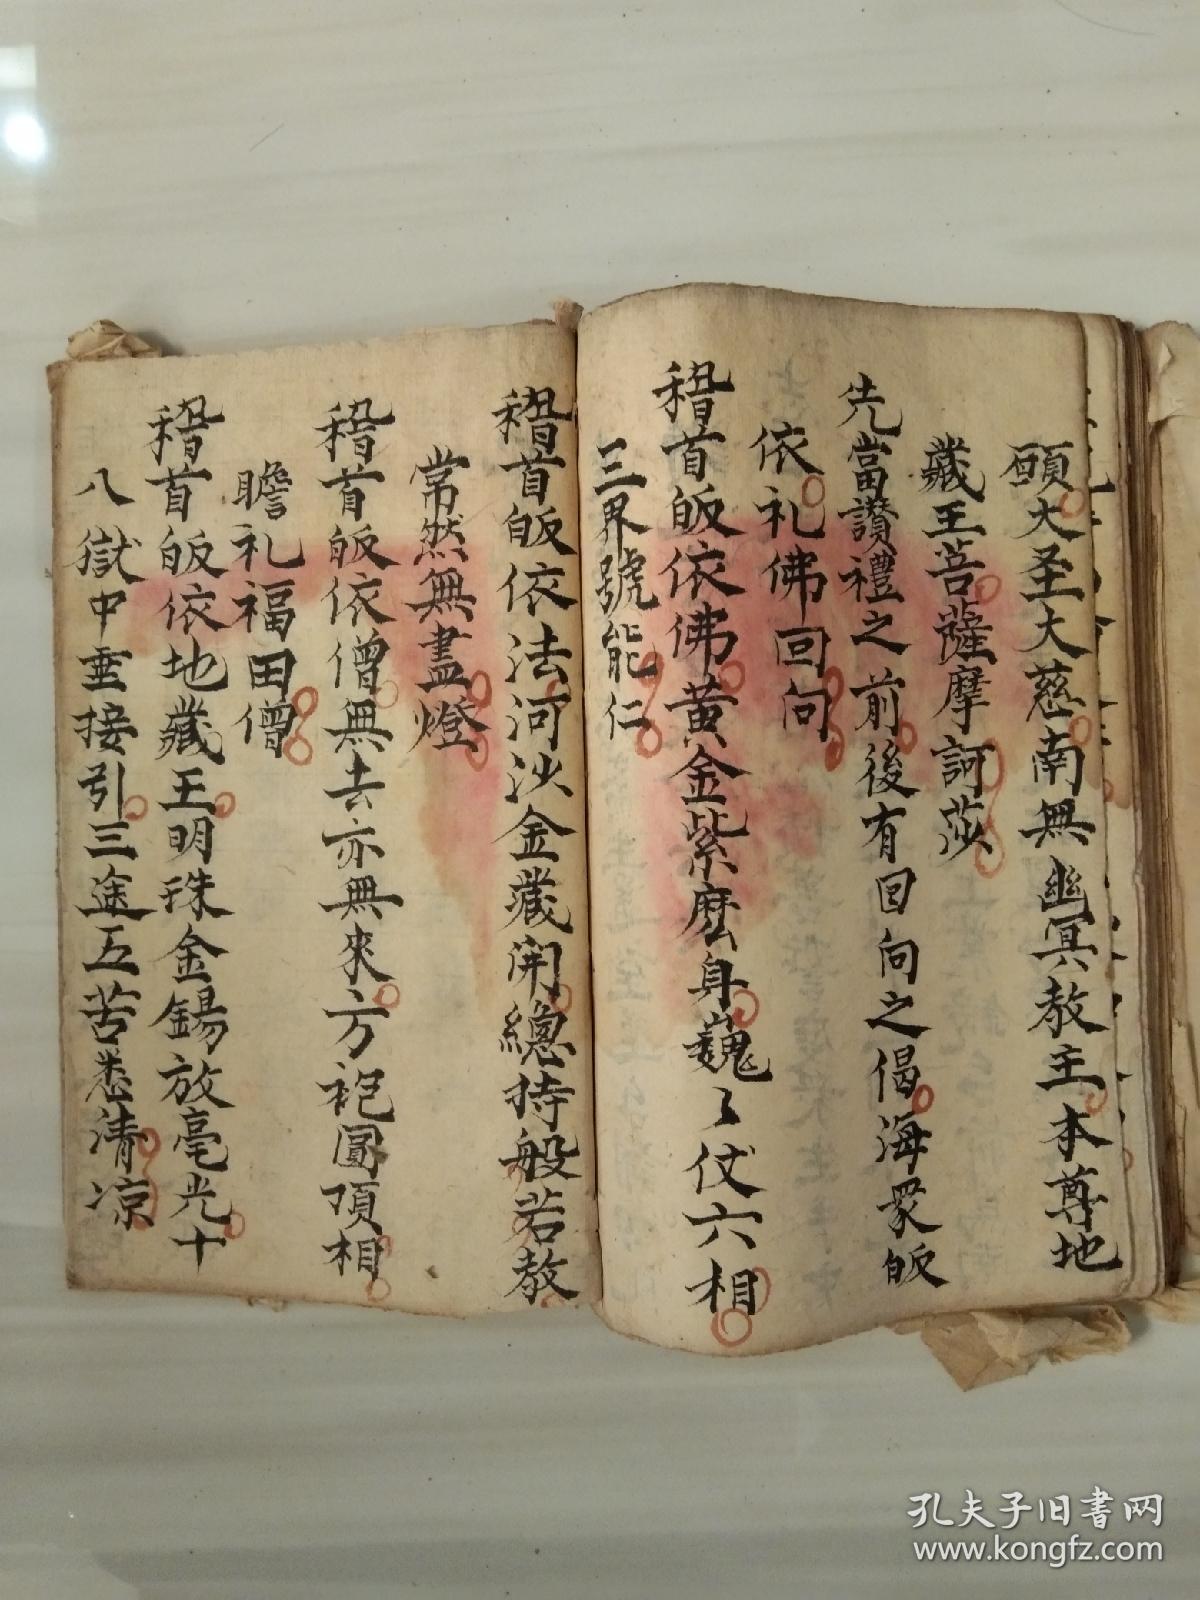 願大圣大慈南無幽冥教主本尊地
藏王菩薩摩訶莎
先當讃禮之前後有回向之偈海衆皈
依礼佛回向
稽首皈依佛黄金紫麽身巍〻仗六相
三界號能仁
稽首皈依法河沙金藏開總持般若教
常然無盡燈
稽首皈依僧無去亦無來方袍圓頂相
瞻礼福田僧
稽首皈依地藏王明珠金錫放毫光十
八獄中垂接引三途五苦悉清凉
孔夫子旧書网
www.kongfz.com